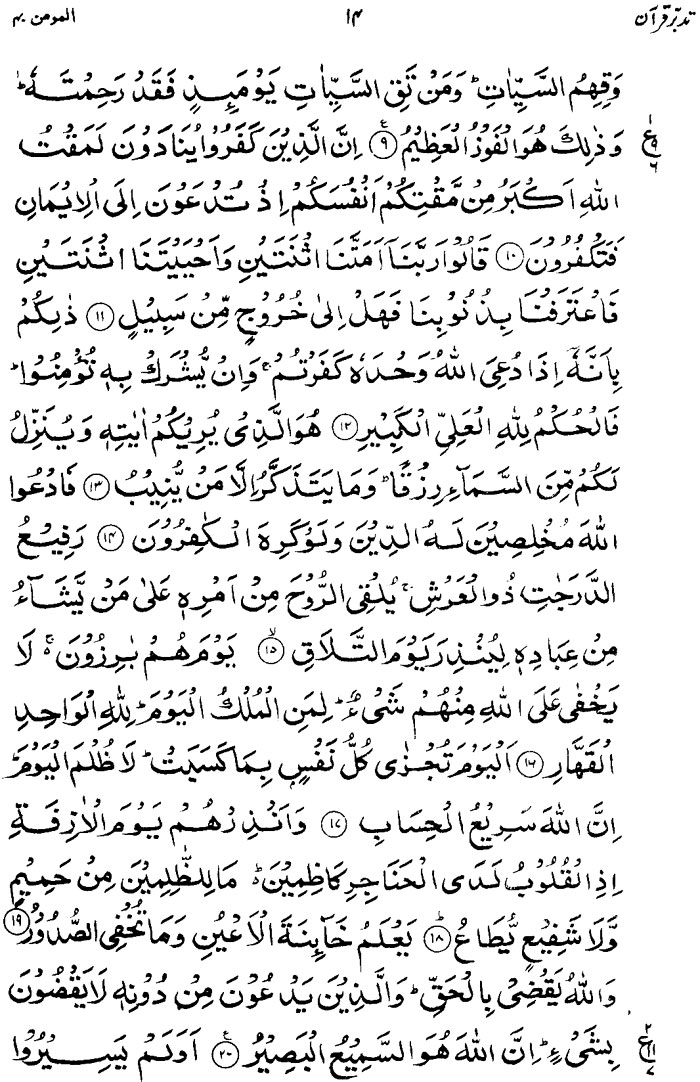 تدبّرِ قرآن ۱۴ المومن ۴۰
وَقِهِمُ السَّيِّاٰتِ ؕ وَمَنْ تَقِ السَّيِّاٰتِ يَوْمَئِذٍ فَقَدْ رَحِمْتَهٗ ؕ
وَذٰلِكَ هُوَ الْفَوْزُ الْعَظِيْمُ ۹ اِنَّ الَّذِيْنَ كَفَرُوْا يُنَادَوْنَ لَمَقْتُ
اللّٰهِ اَكْبَرُ مِنْ مَّقْتِكُمْ اَنْفُسَكُمْ اِذْ تُدْعَوْنَ اِلَى الْاِيْمَانِ
فَتَكْفُرُوْنَ ۱۰ قَالُوْا رَبَّنَاۤ اَمَتَّنَا اثْنَتَيْنِ وَاَحْيَيْتَنَا اثْنَتَيْنِ
فَاعْتَرَفْنَا بِذُنُوْبِنَا فَهَلْ اِلٰى خُرُوْجٍ مِّنْ سَبِيْلٍ ۱۱ ذٰلِكُمْ
بِاَنَّهٗۤ اِذَا دُعِيَ اللّٰهُ وَحْدَهٗ كَفَرْتُمْ ۚ وَاِنْ يُّشْرَكْ بِهٖ تُؤْمِنُوْا ؕ
فَالْحُكْمُ لِلّٰهِ الْعَلِيِّ الْكَبِيْرِ ۱۲ هُوَ الَّذِيْ يُرِيْكُمْ اٰيٰتِهٖ وَيُنَزِّلُ
لَكُمْ مِّنَ السَّمَآءِ رِزْقًا ؕ وَمَا يَتَذَكَّرُ اِلَّا مَنْ يُّنِيْبُ ۱۳ فَادْعُوا
اللّٰهَ مُخْلِصِيْنَ لَهُ الدِّيْنَ وَلَوْ كَرِهَ الْكٰفِرُوْنَ ۱۴ رَفِيْعُ
الدَّرَجٰتِ ذُو الْعَرْشِ ۚ يُلْقِي الرُّوْحَ مِنْ اَمْرِهٖ عَلٰى مَنْ يَّشَآءُ
مِنْ عِبَادِهٖ لِيُنْذِرَ يَوْمَ التَّلَاقِ ۱۵ يَوْمَ هُمْ بٰرِزُوْنَ ۚ لَا
يَخْفٰى عَلَى اللّٰهِ مِنْهُمْ شَيْءٌ ؕ لِمَنِ الْمُلْكُ الْيَوْمَ ؕ لِلّٰهِ الْوَاحِدِ
الْقَهَّارِ ۱۶ اَلْيَوْمَ تُجْزٰى كُلُّ نَفْسٍۭ بِمَا كَسَبَتْ ؕ لَا ظُلْمَ الْيَوْمَ ؕ
اِنَّ اللّٰهَ سَرِيْعُ الْحِسَابِ ۱۷ وَاَنْذِرْهُمْ يَوْمَ الْاٰزِفَةِ
اِذِ الْقُلُوْبُ لَدَى الْحَنَاجِرِ كَاظِمِيْنَ ؕ مَا لِلظّٰلِمِيْنَ مِنْ حَمِيْمٍ
وَّلَا شَفِيْعٍ يُّطَاعُ ۱۸ يَعْلَمُ خَآئِنَةَ الْاَعْيُنِ وَمَا تُخْفِي الصُّدُوْرُ ۱۹
وَاللّٰهُ يَقْضِيْ بِالْحَقِّ ؕ وَالَّذِيْنَ يَدْعُوْنَ مِنْ دُوْنِهٖ لَا يَقْضُوْنَ
بِشَيْءٍ ؕ اِنَّ اللّٰهَ هُوَ السَّمِيْعُ الْبَصِيْرُ ۲۰ اَوَلَمْ يَسِيْرُوْا